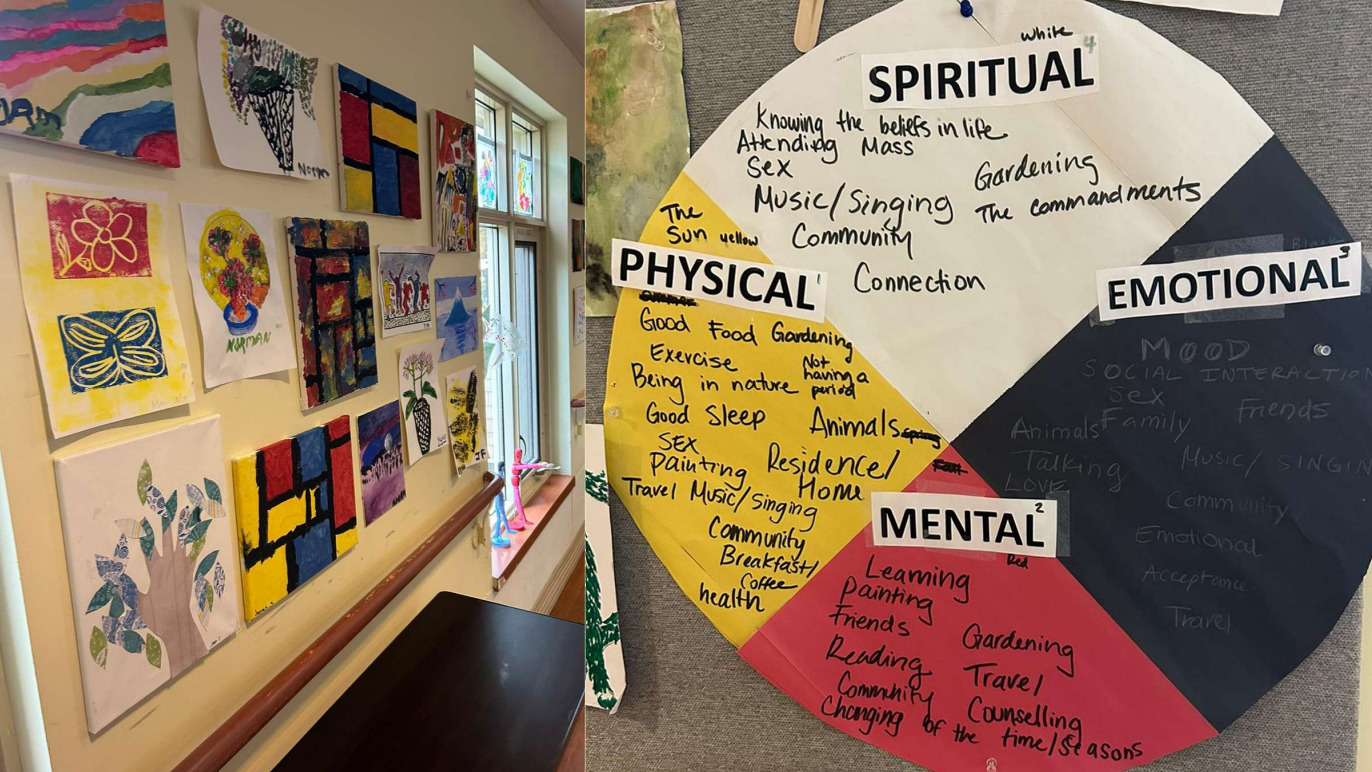 Norm
NORMAN
white
4
SPIRITUAL
Knowing the beliefs in life
Attending Mass
Sex
Gardening
Music/Singing
The commandments
Community
Connection
The
Sun yellow
PHYSICAL 1
Good Food Gardening
Exercise
Not
having a
period
Being in nature
Good Sleep
Animals
SEX
Painting
Residence/
Home
Travel Music/Singing
Community
Breakfast/
Coffee
health
EMOTIONAL 3
MOOD
SOCIAL INTERACTION
Sex
Family
Friends
Animals
Talking
Music/SINGIN
LOVE
Community
Emotional
Acceptance
Travel
MENTAL 2
Red
Learning
Painting
Friends
Gardening
Reading
Travel
Community
Counselling
Changing of the time/seasons